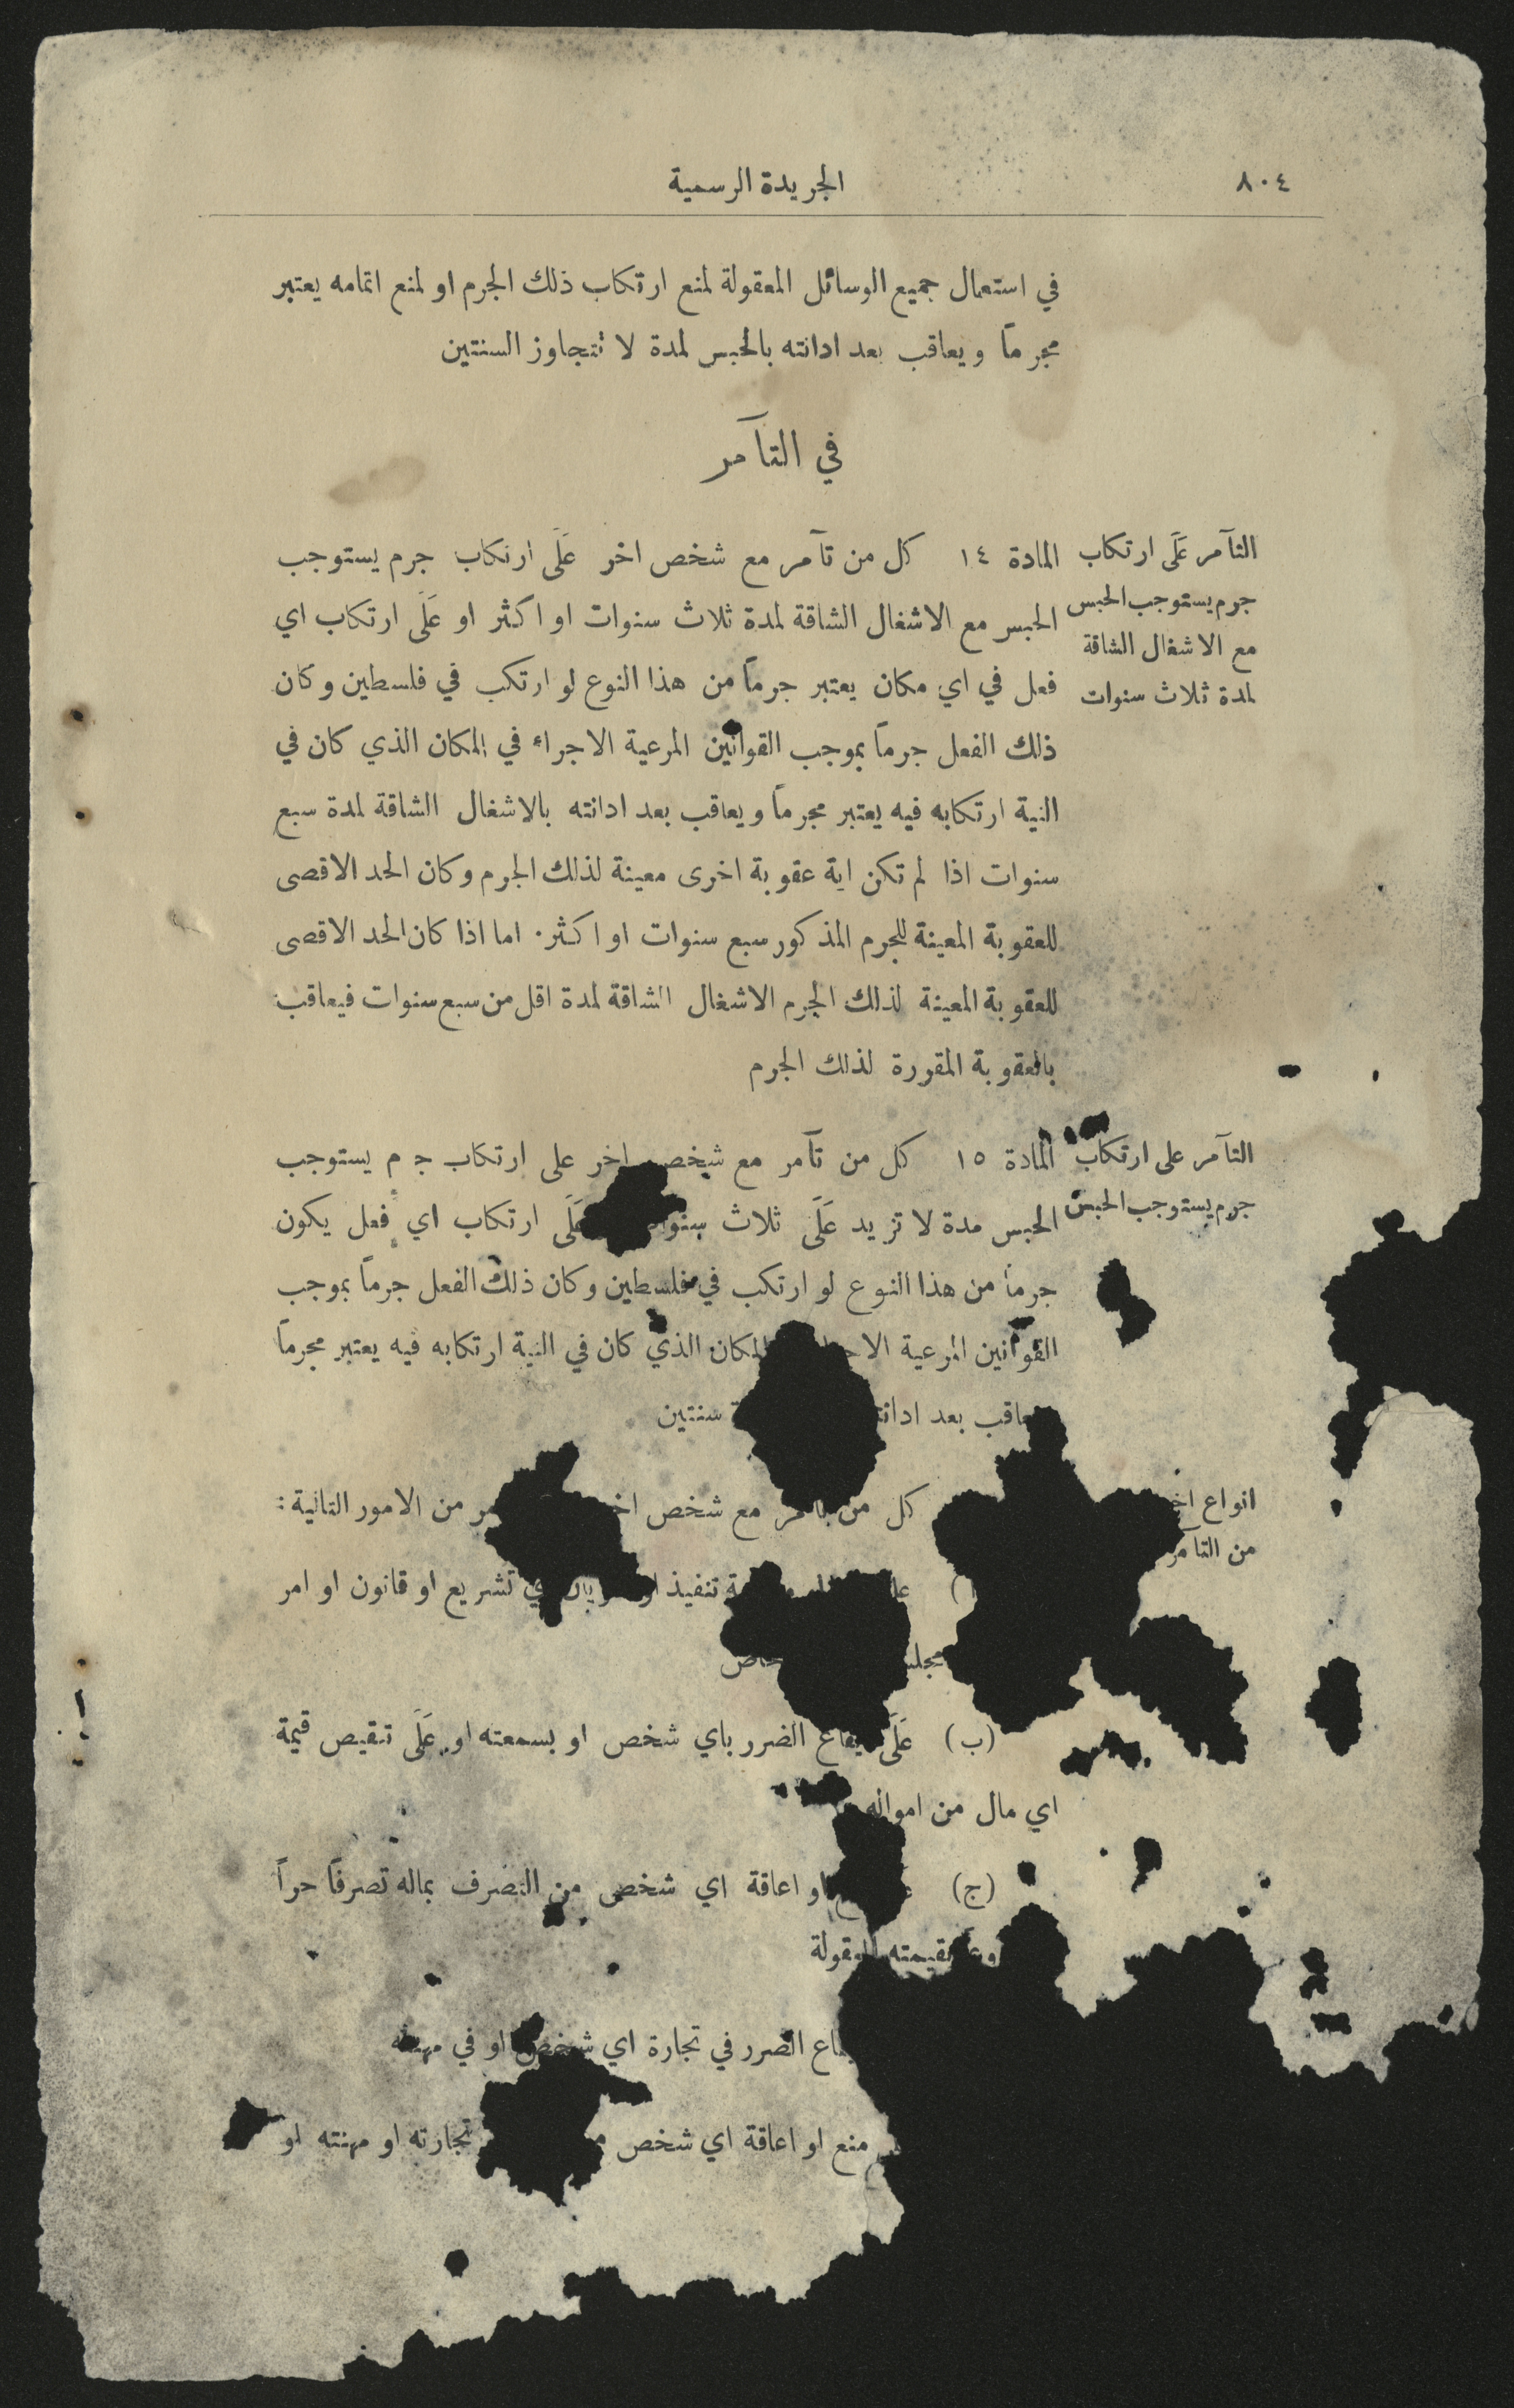 ٨٠٤
الجريدة الرسمية
في استعمال جميع الوسائل المعقولة لمنع ارتكاب ذلك الجرم او لمنع اتمامه يعتبر
مجرماً ويعاقب بعد ادانته بالحبس لمدة لا تتجاوز السنتين
في التآمر
التآمر عَلَى ارتكاب
جرم يستوجب الحبس
مع الاشغال الشاقة
لمدة ثلاث سنوات
المادة ١٤ كل من تآمر مع شخص اخر عَلَى ارتكاب جرم يستوجب
الحبس مع الاشغال الشاقة لمدة ثلاث سنوات او اكثر او عَلَى ارتكاب اي
فعل في اي مكان يعتبر جرماً من هذا النوع لو ارتكب في فلسطين وكان
ذلك الفعل جرماً بموجب القوانين المرعية الاجراء في المكان الذي كان في
النية ارتكابه فيه يعتبر مجرماً ويعاقب بعد ادانته بالاشغال الشاقة لمدة سبع
سنوات اذا لم تكن اية عقوبة اخرى معينة لذلك الجرم وكان الحد الاقصى
للعقوبة المعينة للجرم المذكور سبع سنوات او اكثر. اما اذا كان الحد الاقصى
للعقوبة المعينة لذلك الجرم الاشغال الشاقة لمدة اقل من سبع سنوات فيعاقب
بالعقوبة المقررة لذلك الجرم
التآمر على ارتكاب
جرم يستوجب الحبس
المادة ١٥ كل من تآمر مع شخص اخر على ارتكاب جرم يستوجب
الحبس مدة لا تزيد عَلَى ثلاث عَلَى ارتكاب اي فعل يكون
جرماً من هذا النوع لو ارتكب في فلسطين وكان ذلك الفعل جرماً بموجب
القوانين المرعية المكان الذي كان في النية ارتكابه فيه يعتبر مجرماً
بعد سنتين
انواع
من التآمر
كل من تآمر مع شخص من الامور التالية :
تنفيذ تشريع او قانون او امر
(ب) عَلَى ايقاع الضرر باي شخص او بسمعته او عَلَى تنقيص قيمة
اي مال من امواله
(ج) او اعاقة اي شخص من التصرف بماله تصرفاً حراً
الضرر في تجارة اي شخص او في مهنته
منع او اعاقة اي شخص تجارته او مهنته او